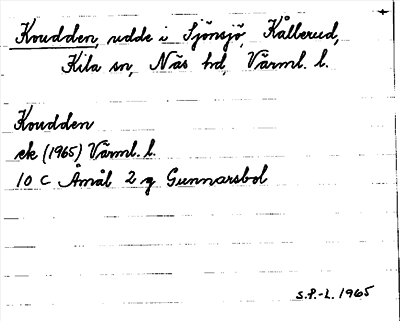 Koudden, udde i Sjönsjö, Kållerud,
Kila sn, Näs hd, Värml. l.
Koudden
ek (1965) Värml. l.
10 C Åmål 2 g Gunnarsbol
S.P.-L. 1965